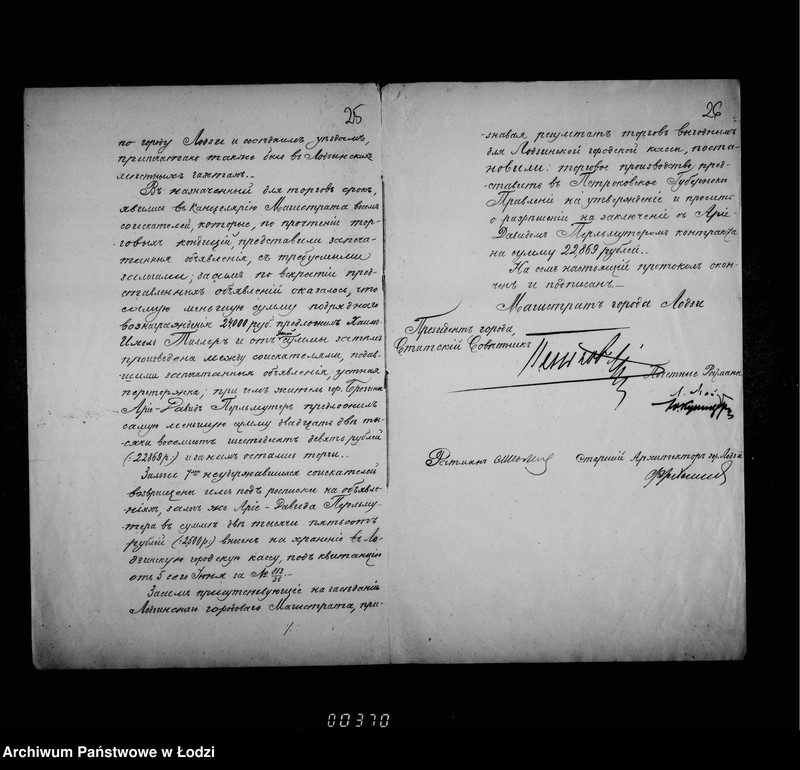 25
по городу Лодзи и соседнимъ уѣздамъ,
припечатано также было въ Лодзинскихъ
мѣстныхъ газетахъ.
Въ назначенный для торговъ срокъ,
явились въ Канцелярію Магистрата восемь
соискателей, которые, по прочтеніи тор-
говыхъ кондицій, представили запеча-
танныя объявленія, съ требуемыми
залогами; засимъ по вскрытіи пред-
ставленныхъ объявленій оказалось, что
самую меньшую сумму подряднаго
вознагражденія 24000 руб. предложилъ Хаимъ
и отъ этой суммы затѣмъ
произведена между соискателями, подав-
шими запечатанныя объявленія, устная
переторжка; при чемъ житель гор.
Аріе-Давидъ Перльмутеръ предложилъ
самую меньшую сумму двадцать двѣ ты-
сячи восемьсотъ шестьдесятъ девять рублей
(:22869 р.:) и за нимъ остались торги.
Залоги 7ми неудержавшихся соискателей
возвращены имъ подъ росписки на объявле-
ніяхъ, залогъ же Аріе-Давида Перльму-
тера въ суммѣ двѣ тысячи пятьсотъ
рублей (:2500 р:) внесенъ на храненіе въ Ло-
дзинскую городскую кассу, подъ квитанцію
отъ 5 сего Іюня за №
Засимъ присутствующіе на засѣданіи
Лодзинскаго городоваго Магистрата, при-
/.
26
знавая результатъ торговъ выгоднымъ
для Лодзинской городской кассы, поста-
новили: торговое производство пред-
ставить въ Петроковское Губернское
Правленіе на утвержденіе и просить
о разрѣшеніи на заключеніе съ Аріе-
Давидомъ Перльмутеромъ контракта
на сумму 22,869 рублей.
На семъ настоящій протоколъ окон-
ченъ и подписанъ.
Магистратъ города Лодзи
Президентъ города,
Статскій Совѣтникъ
Почетные Ратманы
Ратманъ
Старшій Архитекторъ гор. Лодзи
00370
Archiwum Państwowe w Łodzi